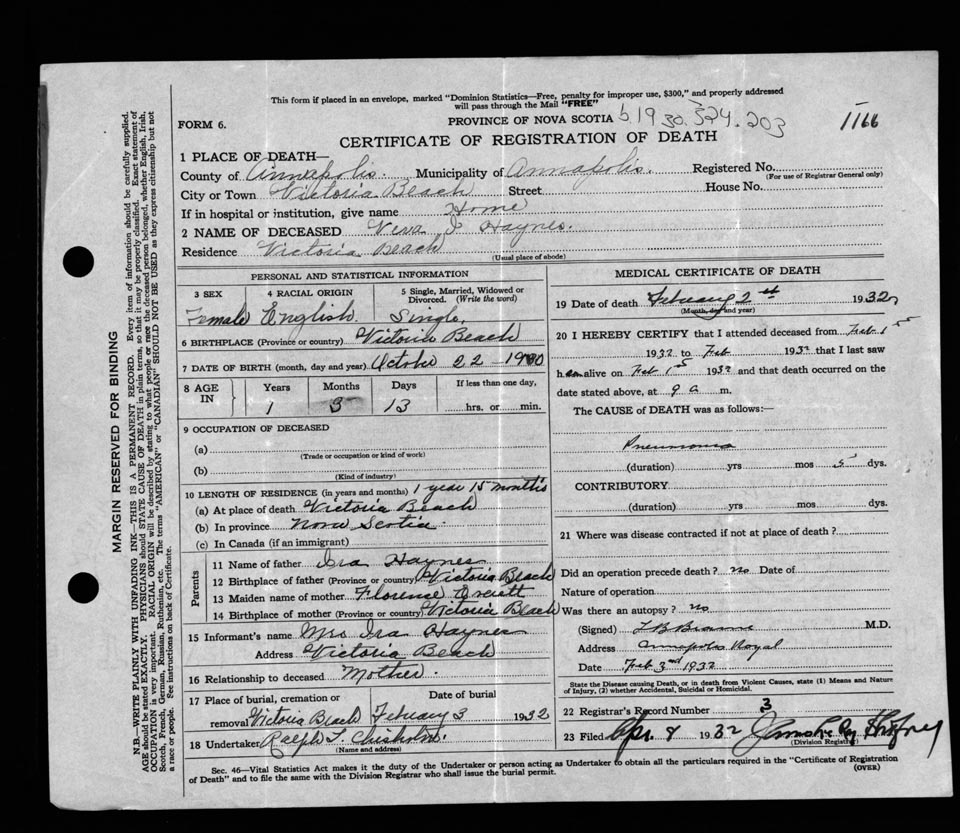 This form if placed in an envelope, marked "Dominion Statistics—Free, penalty for improper use, $300," and properly addressed
will pass through the Mail "FREE"
FORM 6.
PROVINCE OF NOVA SCOTIA
1166
CERTIFICATE OF REGISTRATION OF DEATH
1 PLACE OF DEATH—
County of Annapolis. Municipality of Annapolis. Registered No.
(For use of Registrar General only)
City or Town Victoria Beach Street House No.
If in hospital or institution, give name Home
2 NAME OF DECEASED I Haynes.
Residence Victoria Beach
(Usual place of abode)
PERSONAL AND STATISTICAL INFORMATION
3 SEX 4 RACIAL ORIGIN 5 Single, Married, Widowed or Divorced. (Write the word)
Female English. Single.
6 BIRTHPLACE (Province or country) Victoria Beach
7 DATE OF BIRTH (month, day and year) October 22 - 1930
8 AGE IN Years Months Days If less than one day,
1 3 13 hrs. or min.
9 OCCUPATION OF DECEASED
(a)
(Trade or occupation or kind of work)
(b)
(Kind of industry)
10 LENGTH OF RESIDENCE (in years and months) 1 year 15 months
(a) At place of death Victoria Beach
(b) In province Nova Scotia.
(c) In Canada (if an immigrant)
Parents
11 Name of father Ira Haynes
12 Birthplace of father (Province or country) Victoria Beach
13 Maiden name of mother Florence Everett
14 Birthplace of mother (Province or country) Victoria Beach
15 Informant's name Mrs Ira Haynes
Address Victoria Beach
16 Relationship to deceased Mother.
17 Place of burial, cremation or removal Victoria Beach
Date of burial
February 3 1932
18 Undertaker Ralph T. Chisholm.
(Name and address)
MEDICAL CERTIFICATE OF DEATH
19 Date of death February 2 1932
(Month, day and year)
20 I HEREBY CERTIFY that I attended deceased from Feb 1st
1932 to Feb 1932 that I last saw
h alive on Feb 1st 1932 and that death occurred on the
date stated above, at 9 a m.
The CAUSE of DEATH was as follows:—
Pneumonia
(duration) yrs mos 5 dys.
CONTRIBUTORY
(duration) yrs mos dys.
21 Where was disease contracted if not at place of death?
Did an operation precede death? no Date of
Nature of operation
Was there an autopsy? no
(Signed) M.D.
Address Annapolis Royal
Date Feb 3rd 1932
State the Disease causing Death, or in death from Violent Causes, state (1) Means and Nature
of Injury, (2) whether Accidental, Suicidal or Homicidal.
22 Registrar's Record Number 3
23 Filed Apr. 8 1932
(Division Registrar)
Sec. 46—Vital Statistics Act makes it the duty of the Undertaker or person acting as Undertaker to obtain all the particulars required in the "Certificate of Registration
of Death" and to file the same with the Division Registrar who shall issue the burial permit.
(OVER)
MARGIN RESERVED FOR BINDING
N.B.—WRITE PLAINLY WITH UNFADING INK—THIS IS A PERMANENT RECORD. Every item of information should be carefully supplied.
AGE should be stated EXACTLY. PHYSICIANS should STATE CAUSE OF DEATH in plain terms, so that it may be properly classified. Exact statement of
OCCUPATION is very important. RACIAL ORIGIN will be described by stating to what people or race the deceased person belonged, whether English, Irish,
Scotch, French, German, Russian, Ruthenian, etc. The terms "AMERICAN" or "CANADIAN" SHOULD NOT BE USED as they express citizenship but not
a race or people. See instructions on back of Certificate.